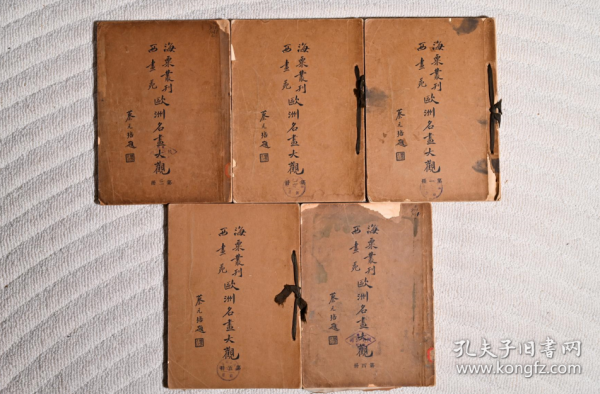 海粟叢刊
西畫苑
歐洲名畫大觀
蔡元培題
海粟叢刊
西畫苑
歐洲名畫大觀
蔡元培題
海粟叢刊
西畫苑
歐洲名畫大觀
蔡元培題
海粟叢刊
西畫苑
歐洲名畫大觀
蔡元培題
海粟叢刊
西畫苑
歐洲名畫大觀
蔡元培題
孔夫子旧书网
www.kongfz.com